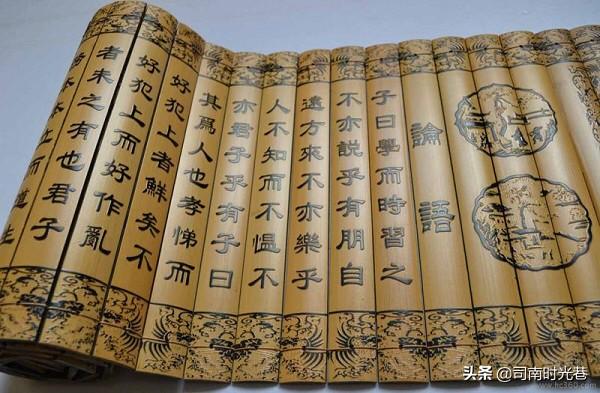 論語
子曰學而時習之
不亦說乎有朋自
遠方來不亦樂乎
人不知而不慍不
亦君子乎有子曰
其爲人也孝悌而
好犯上者鮮矣不
好犯上而好作亂
者未之有也君子
本本立而道生
头条 @司南时光巷
www.hc360.com